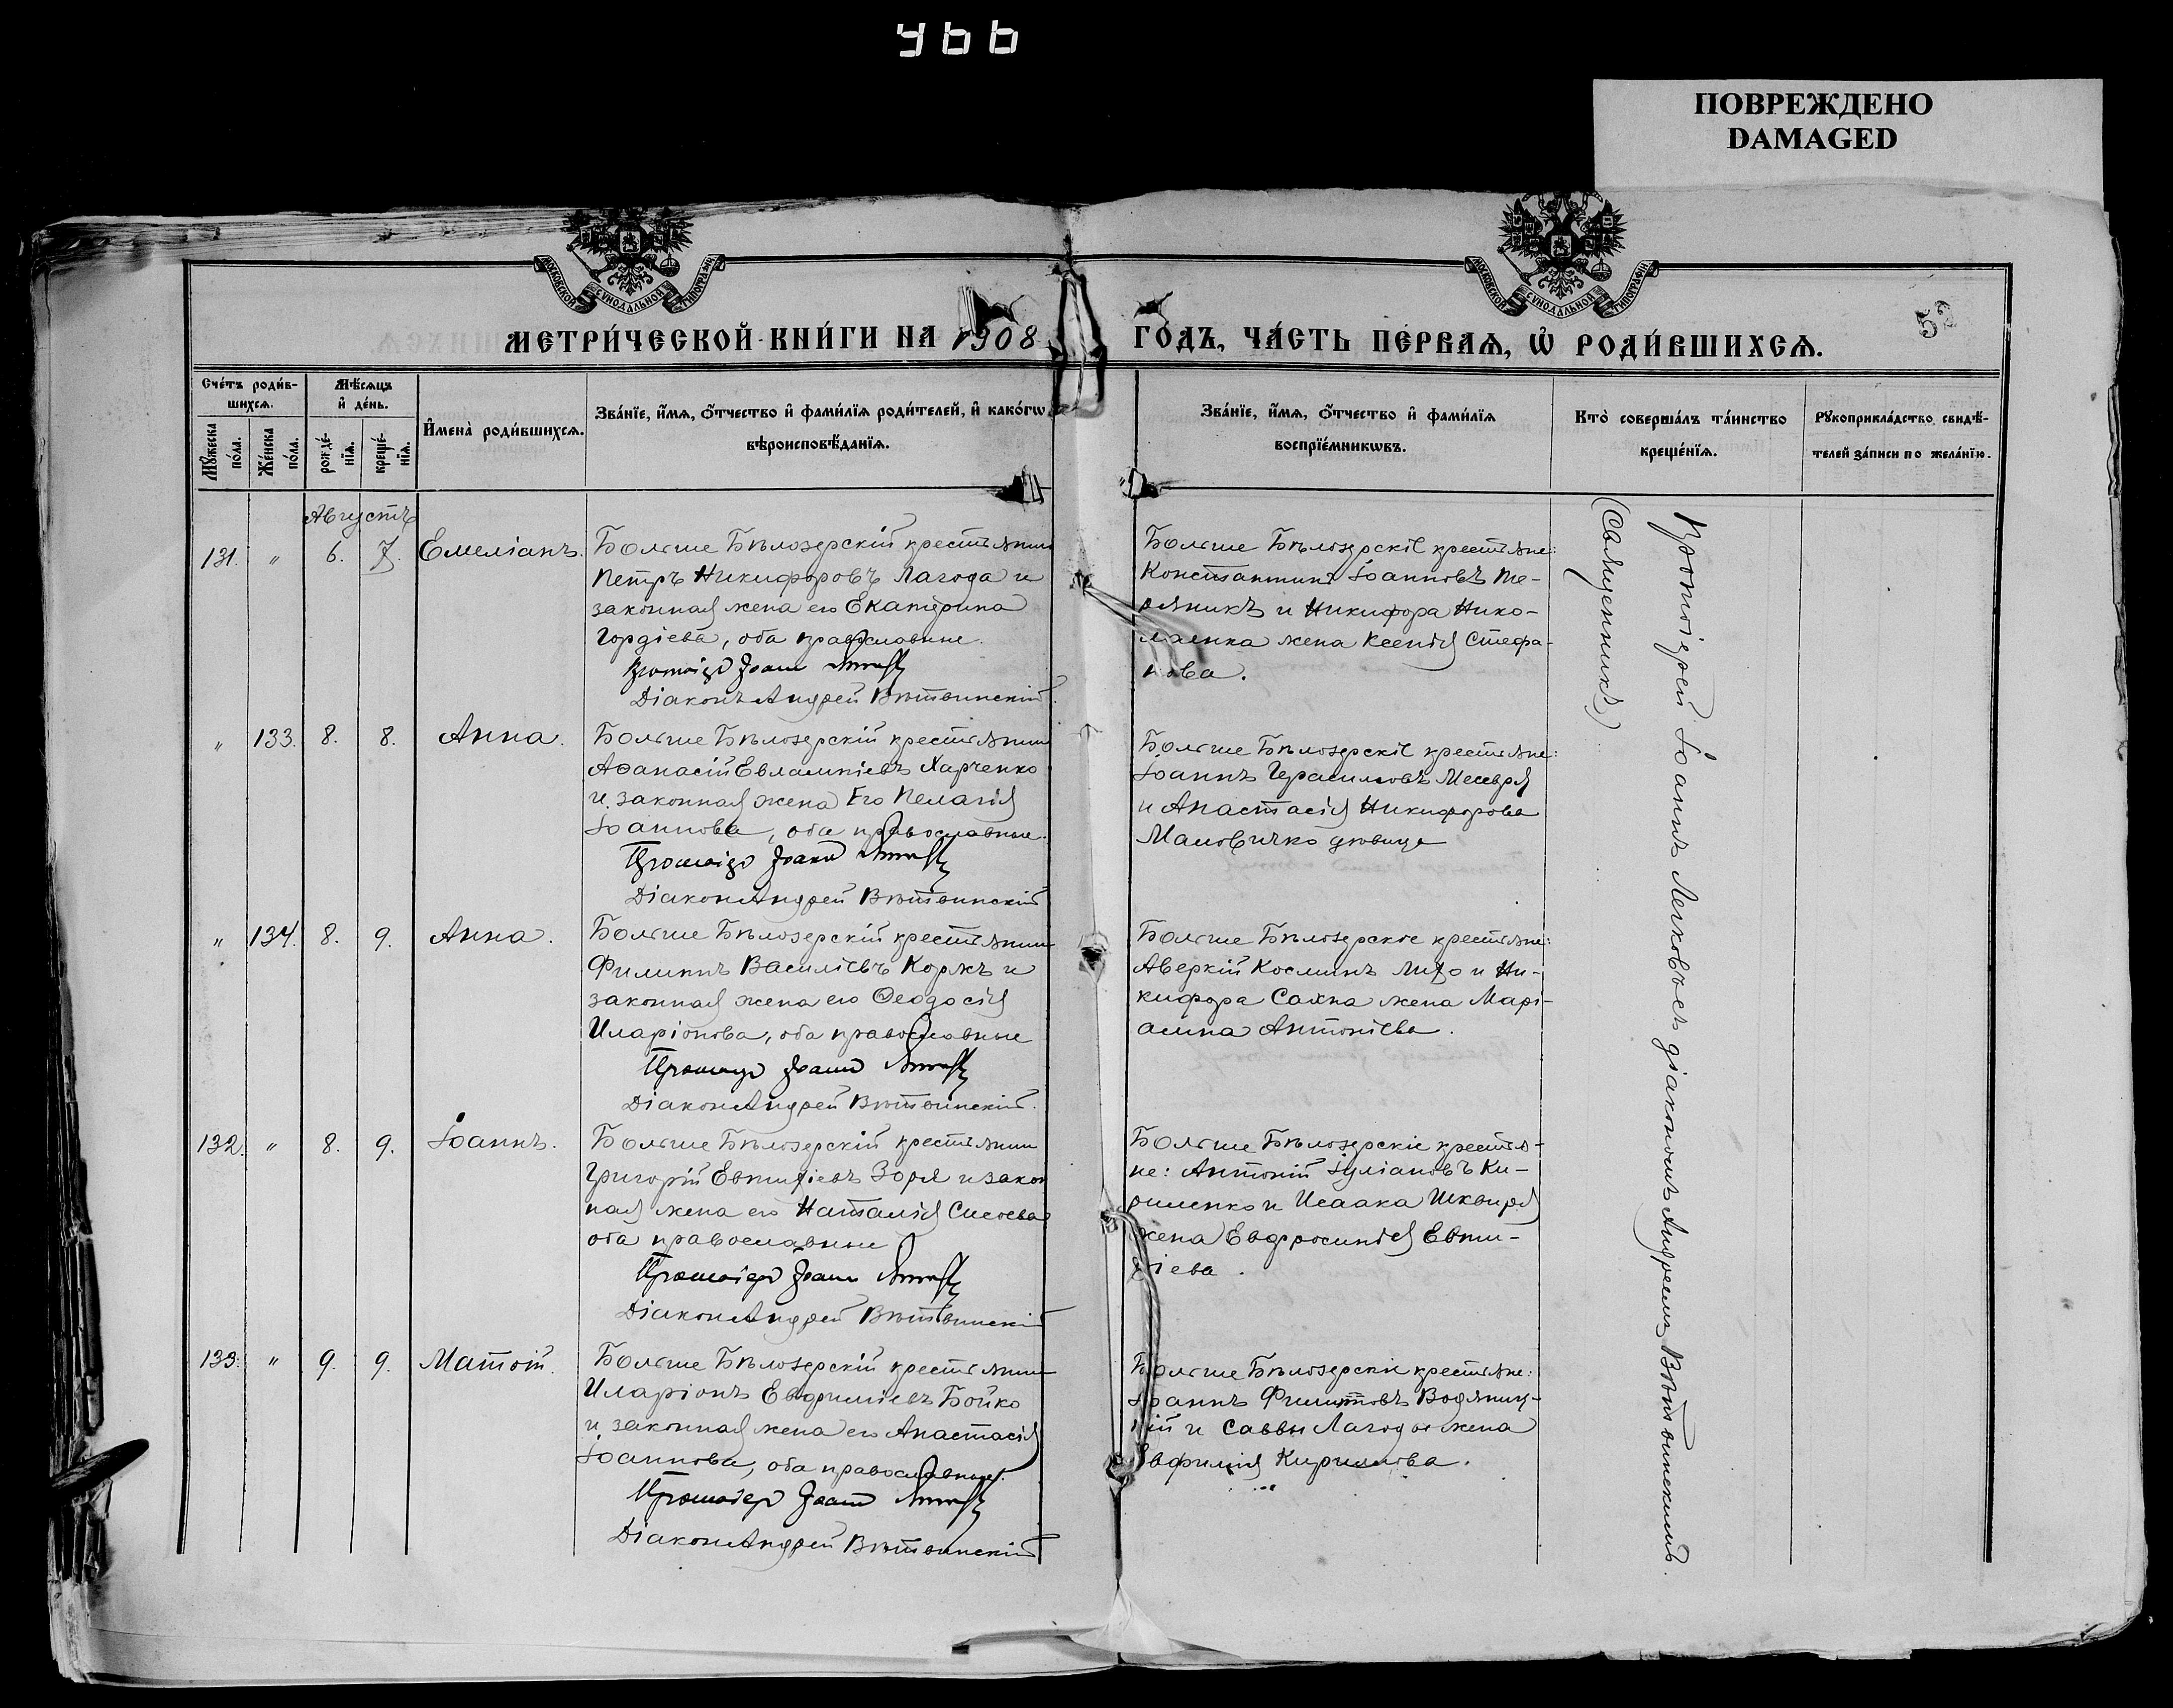 466
ПОВРЕЖДЕНО
DAMAGED
МОСКОВСКОЙ СѴНОДАЛЬНОЙ ТИПОГРАФІИ
МОСКОВСКОЙ СѴНОДАЛЬНОЙ ТИПОГРАФІИ
МЕТРИ́ЧЕСКОЙ КНИ́ГИ НА 1908
ГО́ДЪ, ЧА́СТЬ ПЕ́РВАѦ, Ѽ РОДИ́ВШИХСѦ.
52
Сче́тъ роди́в-
шихсѧ.
Мꙋ́жеска по́ла.
Же́нска по́ла.
Мѣ́сѧцъ
и҆ де́нь.
рожде́-
нїѧ.
креще́-
нїѧ.
И҆мена̀ роди́вшихсѧ.
Зва́нїе, и҆́мѧ, ѻ҆́тчество и҆ фами́лїѧ роди́телей, и҆ како́гѡ
вѣроисповѣ́данїѧ.
Зва́нїе, и҆́мѧ, ѻ҆́тчество и҆ фами́лїѧ
воспрїе́мникѡвъ.
Кто̀ соверша́лъ та́инство
креще́нїѧ.
Рꙋкоприкла́дство свидѣ́-
телей за́писи по жела́нїю.
Августъ
131. " 6. 7. Емеліанъ.
Больше Бѣлозерскій крестьянинъ
Петръ Никифоровъ Лагода и
законная жена его Екатерина
Гордіева, оба православные.
Протоіер Іоанн
Діаконъ Андрей Вѣтвинскій.
Больше Бѣлозерскіе крестьяне:
Константинъ Іоанновъ Те-
рляникъ и Никифора Нико-
лаенка жена Ксенія Стефа-
нова.
" 133. 8. 8. Анна.
Больше Бѣлозерскій крестьянин
Афанасій Евлампіевъ Харченко
и законная жена Его Пелагія
Іоаннова, оба православные.
Протоіер Іоанн
Діакон Андрей Вѣтвинскій
Больше Бѣлозерскіе крестьяне:
Іоаннъ Герасимовъ
и Анастасія Никифорова
Мамовичко девица
" 134. 8. 9. Анна.
Больше Бѣлозерскій крестьянин
Филиппъ Василіевъ Коржъ и
законная жена его Ѳеодосія
Иларіонова, оба православные
Протоіер Іоанн
Діакон Андрей Вѣтвинскій.
Больше Бѣлозерскіе крестьяне:
Аверкій Косминъ и Ни-
кифора Сахна жена Марі-
амна Антоніева.
132. " 8. 9. Іоаннъ.
Больше Бѣлозерскій крестьянин
Григорій Евтихіевъ Зоря и закон
ная жена его Наталія Сисоева
оба православные
Протоіер Іоанн
Діакон Андрей Вѣтвинскій
Больше Бѣлозерскіе крестья-
не: Антоній Іуліановъ Ки-
риленко и Исаака Шквиря
жена Евфросинія Евти-
хіева.
133. " 9. 9. Матѳій.
Больше Бѣлозерскій крестьянин
Иларіонъ Евфиміевъ Бойко
и законная жена его Анастасія
Іоаннова, оба православные.
Протоіер Іоанн
Діакон Андрей Вѣтвинскій
Больше Бѣлозерскіе крестьяне:
Іоаннъ Филиповъ Водяниц-
кій и Саввы Лагоды жена
Евфимія Кириллова.
Протоіерей Іоаннъ съ діакономъ Андреемъ Вѣтвинскимъ.
(Священникъ)